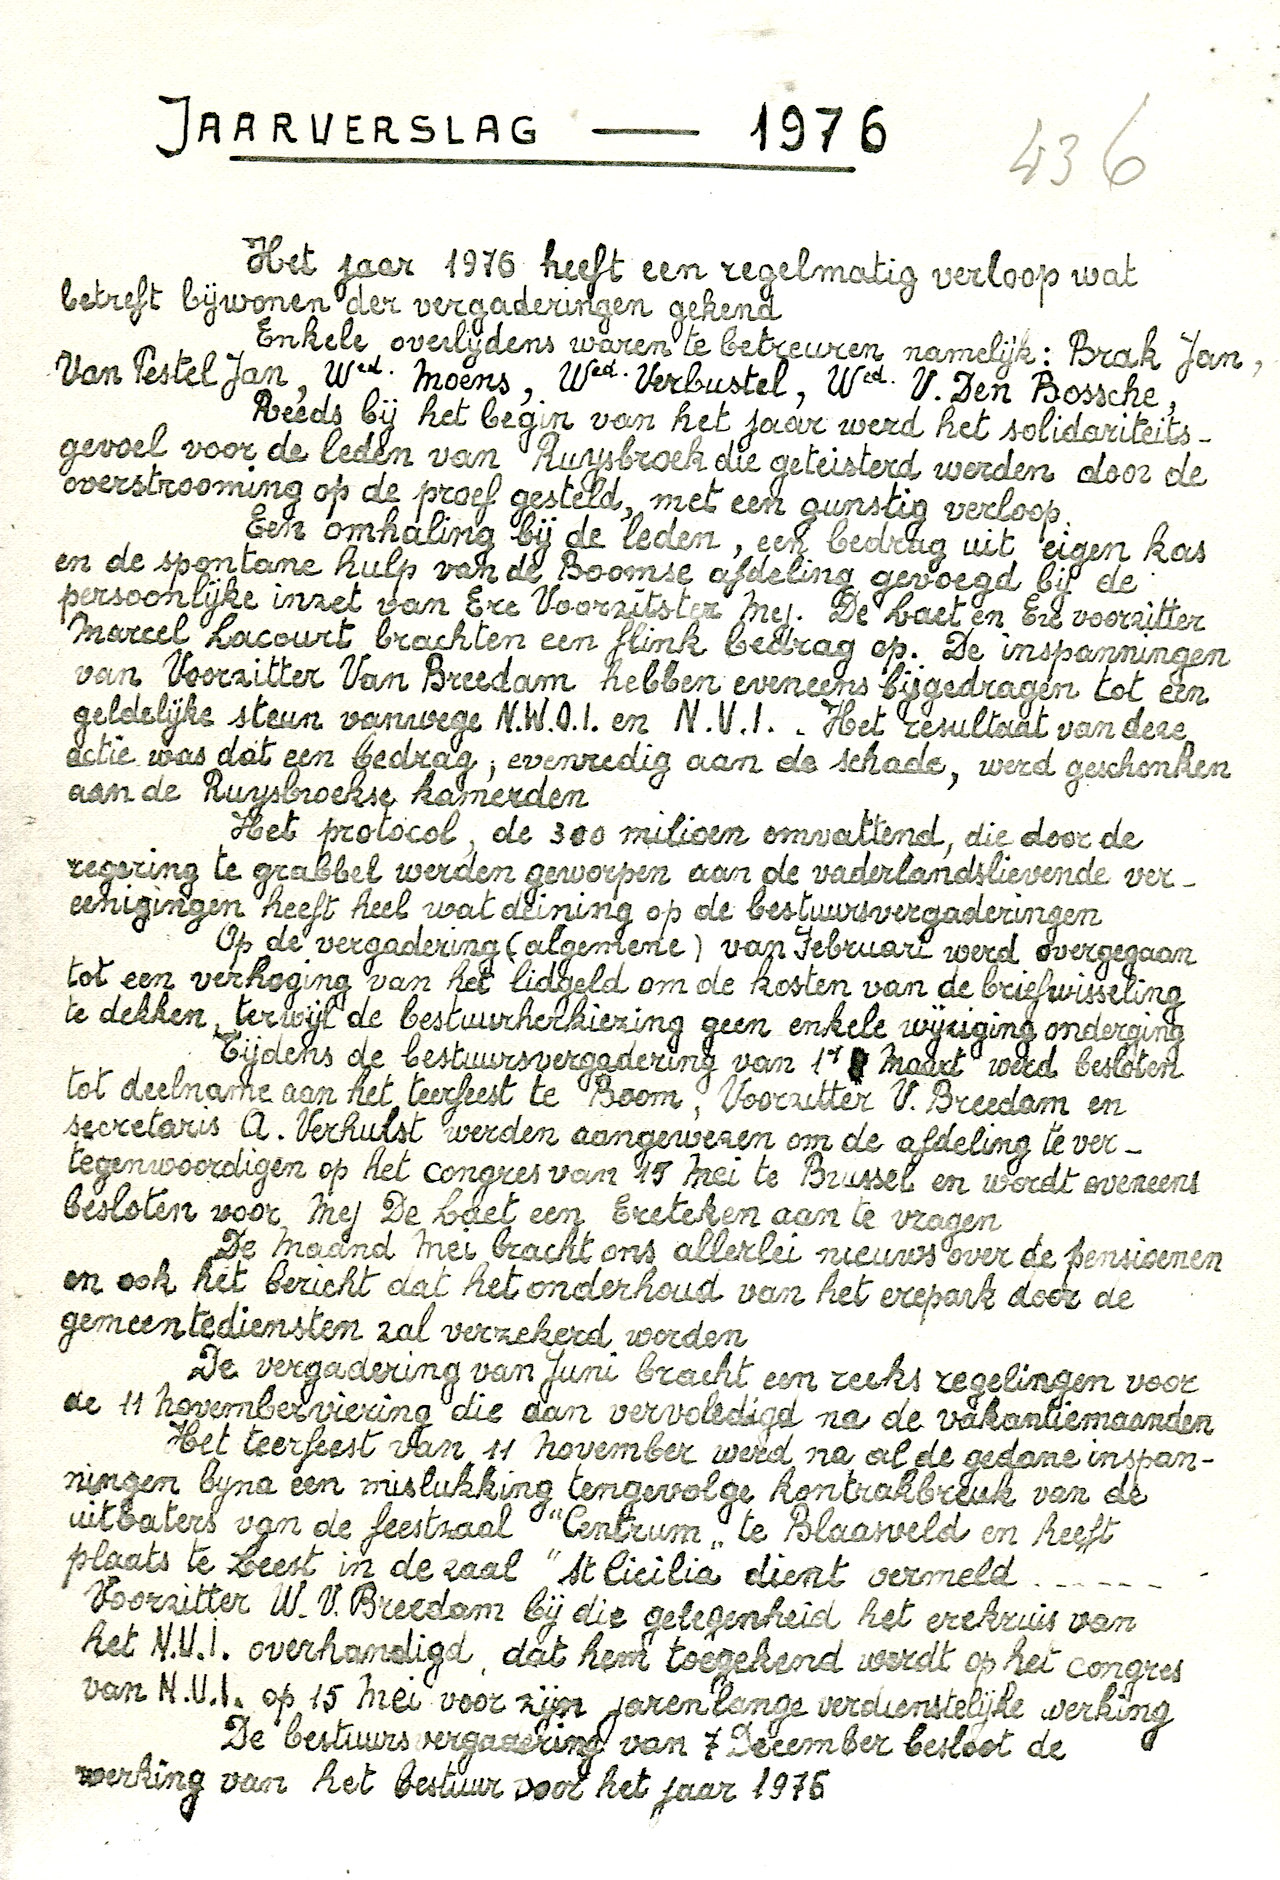 JAARVERSLAG — 1976
436
Het jaar 1976 heeft een regelmatig verloop wat
betreft bijwonen der vergaderingen gekend
Enkele overlijdens waren te betreuren namelijk: Brak Jan,
Van Pestel Jan, Wed. Moens, Wed. Verbustel, Wed. V. Den Bossche,
Reeds bij het begin van het jaar werd het solidariteits-
gevoel voor de leden van Ruysbroek die geteisterd werden door de
overstrooming op de proef gesteld, met een gunstig verloop.
Een omhaling bij de leden, een bedrag uit eigen kas
en de spontane hulp van de Boomse afdeling gevoegd bij de
persoonlijke inzet van Ere Voorzitster Mej. De Laet en Ere voorzitter
Marcel Lacourt brachten een flink bedrag op. De inspanningen
van Voorzitter Van Breedam hebben eveneens bijgedragen tot een
geldelijke steun vanwege N.W.O.I. en N.V.I.. Het resultaat van deze
actie was dat een bedrag, evenredig aan de schade, werd geschonken
aan de Ruysbroekse kamerden
Het protocol, de 300 milioen omvattend, die door de
regering te grabbel werden geworpen aan de vaderlandslievende ver-
eenigingen heeft heel wat deining op de bestuursvergaderingen
Op de vergadering (algemene) van Februari werd overgegaan
tot een verhoging van het lidgeld om de kosten van de briefwisseling
te dekken, terwijl de bestuurherkiezing geen enkele wijziging onderging
Tijdens de bestuursvergadering van 1st Maart werd besloten
tot deelname aan het teerfeest te Boom, Voorzitter V. Breedam en
secretaris A. Verhulst werden aangewezen om de afdeling te ver-
tegenwoordigen op het congres van 15 Mei te Brussel en wordt eveneens
besloten voor Mej De Laet een Ereteken aan te vragen
De Maand Mei bracht ons allerlei nieuws over de pensioenen
en ook het bericht dat het onderhoud van het erepark door de
gemeentediensten zal verzekerd worden
De vergadering van Juni bracht een reeks regelingen voor
de 11 novemberviering die dan vervoledigd na de vakantiemaanden
Het teerfeest van 11 november werd na al de gedane inspan-
ningen byna een mislukking tengevolge kontrakbreuk van de
uitbaters van de feestzaal "Centrum„ te Blaasveld en heeft
plaats te Leest in de zaal "St Cicilia dient vermeld . - - - - -
Voorzitter W. V. Breedam bij die gelegenheid het erekruis van
het N.V.I. overhandigd, dat hem toegekend werdt op het congres
van N.V.I. op 15 Mei voor zijn jarenlange verdienstelijke werking
De bestuursvergadering van 7 December besloot de
werking van het bestuur voor het jaar 1976